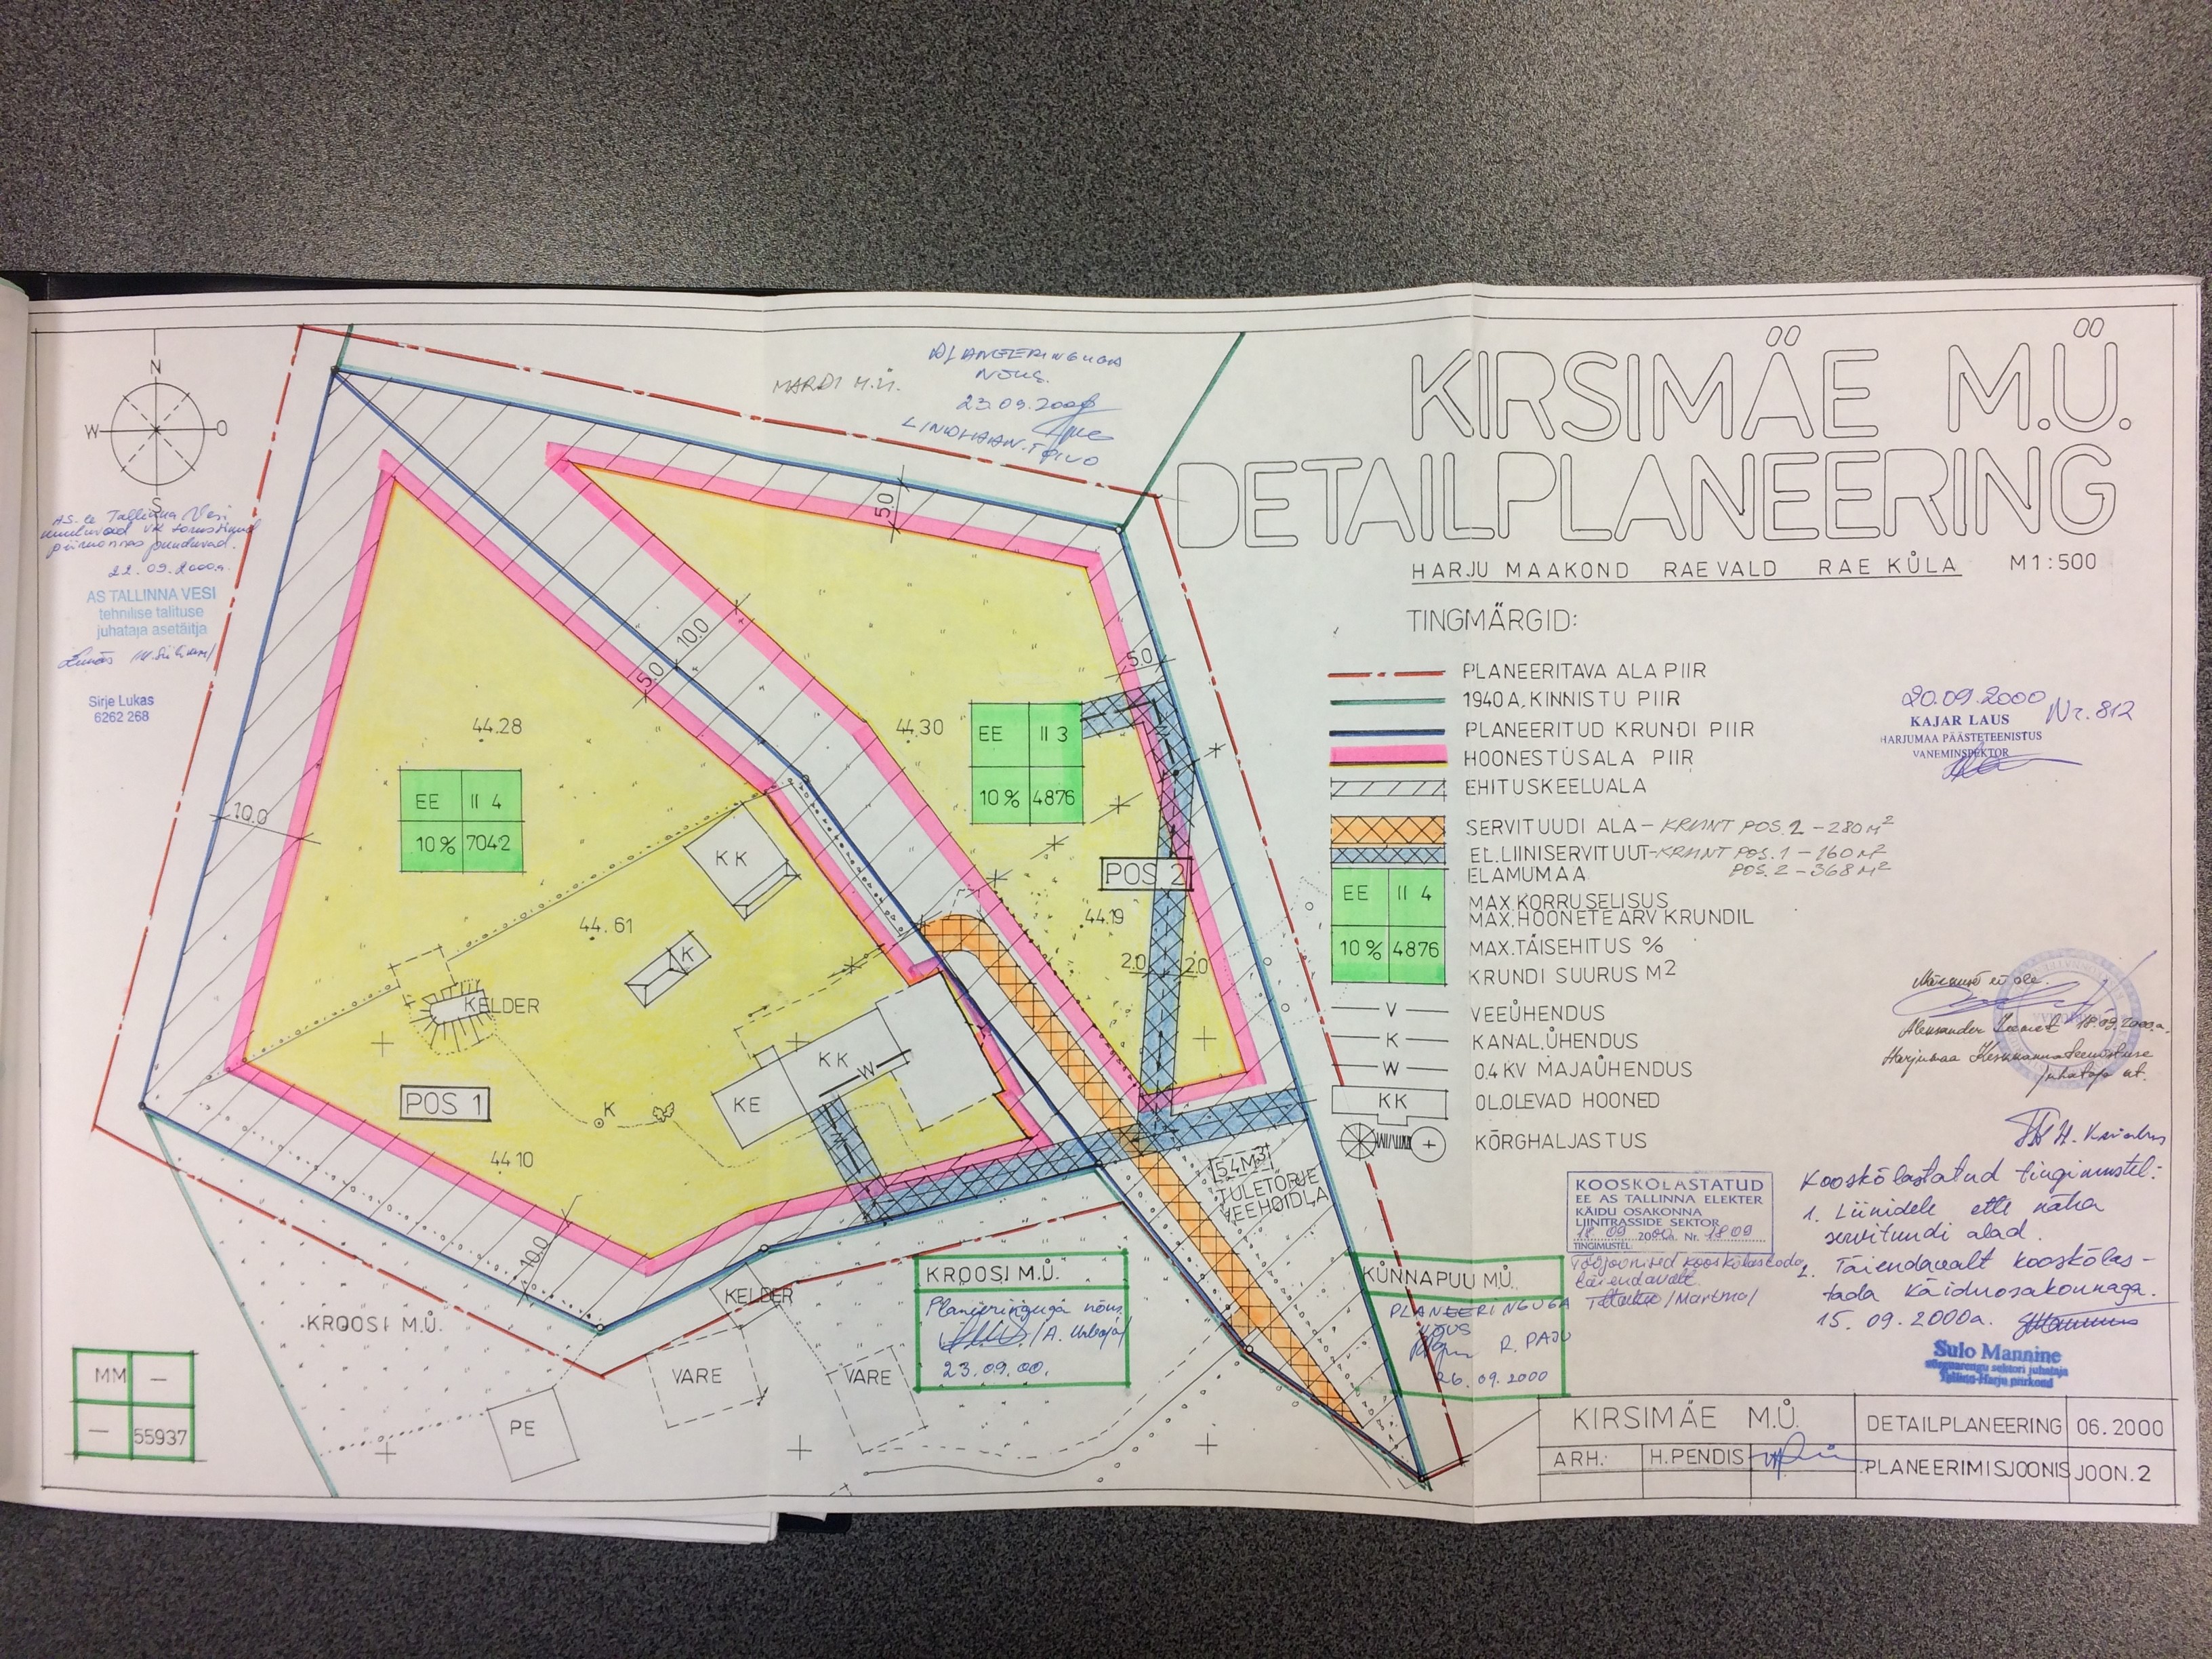 KIRSIMÄE M.Ü.
DETAILPLANEERING
HARJU MAAKOND RAE VALD RAE KÜLA M 1:500
TINGMÄRGID:
PLANEERITAVA ALA PIIR
1940 A. KINNISTU PIIR
PLANEERITUD KRUNDI PIIR
HOONESTUSALA PIIR
EHITUSKEELUALA
SERVITUUDI ALA - KRUNT POS. 2 - 280 M²
EL. LIINISERVITUUT - KRUNT POS. 1 - 160 M²
POS. 2 - 368 M²
ELAMUMAA
EE II 4
MAX. KORRUSELISUS
MAX. HOONETE ARV KRUNDIL
10% 4876
MAX. TÄISEHITUS %
KRUNDI SUURUS M2
V VEEÜHENDUS
K KANAL. ÜHENDUS
W 0.4 KV MAJAÜHENDUS
KK OL.OLEVAD HOONED
KÕRGHALJASTUS
N
W O
S
22.09.2000a.
AS TALLINNA VESI
tehnilise talituse
juhataja asetäitja
Sirje Lukas
6262 268
MARDI M.Ü.
PLANEERINGUGA
NÕUS.
23.09.2000
5.0
10.0
5.0
5.0
10.0
44.28
44.30
EE II 4
10% 7042
EE II 3
10% 4876
KK
POS 2
44.61
44.19
K
2.0 2.0
KELDER
KK
W
KE
POS 1
K
44.10
10.0
54 M3
TULETÕRJE
VEEHOIDLA
KROOSI M.Ü.
KELDER
VARE
VARE
PE
MM —
— 55937
KROOSI M.Ü.
Planeeringuga nõus
23.09.00.
KÜNNAPUU MÜ.
PLANEERINGUGA
NÕUS
R. PAJU
26.09.2000
20.09.2000
Nr. 812
KAJAR LAUS
HARJUMAA PÄÄSTETEENISTUS
VANEMINSPEKTOR
18.09.2000.a.
KOOSKÕLASTATUD
EE AS TALLINNA ELEKTER
KÄIDU OSAKONNA
LIINITRASSIDE SEKTOR
18 09 2000a. Nr. 1809
TINGIMUSTEL
Tööjoonised kooskõlastada
täiendavalt
Kooskõlastatud tingimustel:
1. Liinidele ette näha
servituudi alad.
2. Täiendavalt kooskõlas-
tada käiduosakonnaga.
15.09.2000a.
Sulo Mannine
KIRSIMÄE M.Ü.
DETAILPLANEERING 06.2000
ARH: H. PENDIS
PLANEERIMISJOONIS JOON. 2